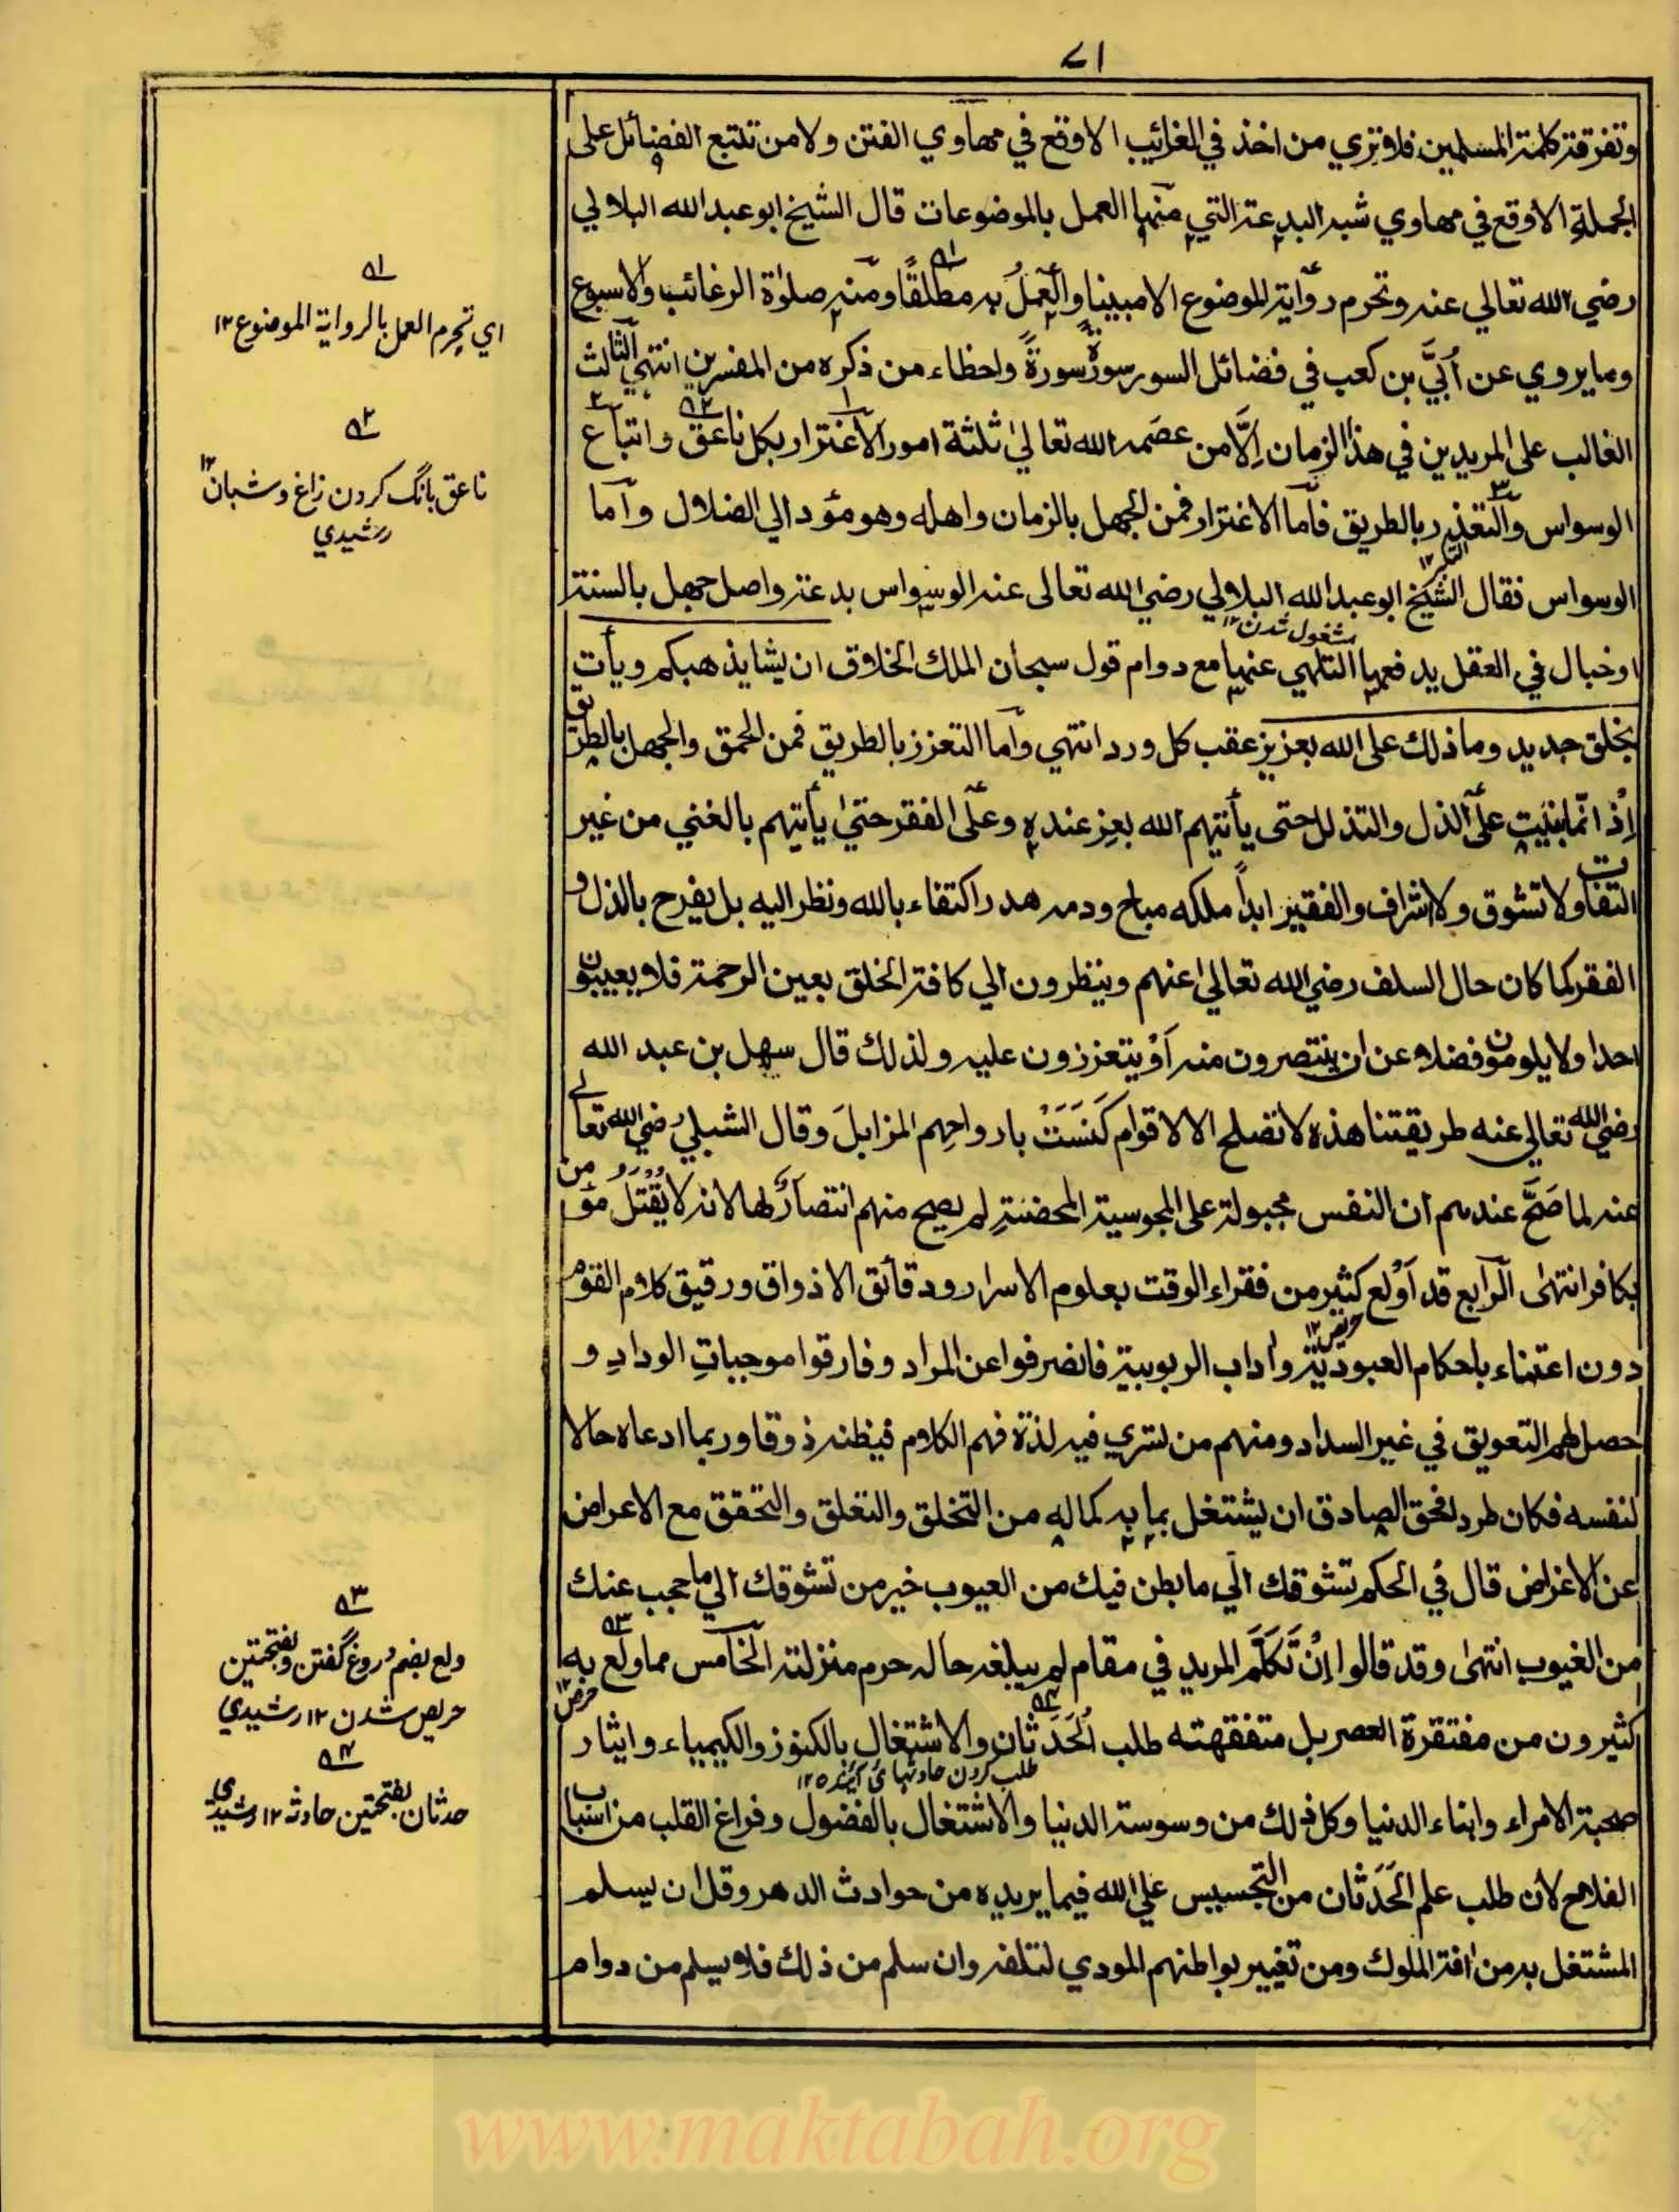 ٧١
وتفرقة كلمة المسلمين فلا تري من اخذ في الغرائب الا وقع في مهاوي الفتن ولا من تتبع الفضائل على
الجملة الا وقع في مهاوي شبه البدعة التي منها العمل بالموضوعات قال الشيخ ابو عبد الله البلالي
رضي الله تعالي عنه وتحرم رواية الموضوع الا مبينا والعملُ به مطلقًا ومنه صلوٰة الرغائب والاسبوع
وما يروي عن اُبَيِّ بن كعب في فضائل السور سورةً سورةً واخطاء من ذكره من المفسرين انتهي الثالث
الغالب على المريدين في هذا الزمان اِلَّا من عصَمه الله تعاليٰ ثلثة امور الاغترار بكل ناعق واتباع
الوسواس والتعذر بالطريق فاما الاغترار فمن الجهل بالزمان واهله وهو مؤد الي الضلال واما
التكبر ١٢
الوسواس فقال الشيخ ابو عبد الله البلالي رضي الله تعالى عنه الوسواس بدعة واصل جهل بالسنة
مشغول شدن ١٢
او خبال في العقل يدفعها التلهي عنها مع دوام قول سبحان الملك الخلاق ان يشا يذهبكم ويأت
بخلق جديد وما ذلك على الله بعزيز عقب كل ورد انتهي واما التعزز بالطريق فمن الحمق والجهل بالطريق
اِذ انما بنيت على الذل والتذلل حتى يأتيهم الله بعز عنده وعلى الفقر حتيٰ يأتيهم بالغني من غير
التفات ولا تشوق ولا اشراف والفقير ابداً ملكه مباح ودمه هدر اكتفاء بالله ونظر اليه بل يفرح بالذل و
الفقر كما كان حال السلف رضي الله تعالي عنهم وينظرون الي كافة الخلق بعين الرحمة فلا يعيبون
احدا ولا يلومون فضلا عن ان ينتصرون منه اَوْ يتعززون عليه ولذلك قال سهل بن عبد الله
رضي الله تعالي عنه طريقتنا هذه لا تصلح الا لاقوام كَنَسَتْ بارواحهم المزابلَ وقال الشبلي رضي الله تعالي
عنه لما صَحَّ عندهم ان النفس مجبولة على المجوسية المحضةِ لم يصح منهم انتصارٌ لها لانه لا يُقْتَلُ مؤمن
بكافر انتهىٰ الرابع قد اَوْلع كثير من فقراء الوقت بعلوم الاسرار ودقائق الاذواق ورقيق كلام القوم
حريص ١٢
دون اعتناء باحكام العبودية واداب الربوبية فانصرفوا عن المراد وفارقوا موجباتِ الودادِ و
حصل لهم التعويق في غير السداد ومنهم من تسري فيه لذة فهم الكلام فيظنه ذوقا وربما ادعاه حالا
لنفسه فكان طرد لفحق الصادق ان يشتغل بما به كماله من التخلق والتعلق والتحقق مع الاعراض
عن الاغراض قال في الحكم تشوقك الي ما بطن فيك من العيوب خير من تشوقك الي ما حجب عنك
من الغيوب انتهىٰ وقد قالوا اِنْ تَكَلَّمَ المريد في مقام لم يبلغه حاله حرم منزلته الخامس مما ولع به
حرص ١٢
كثيرون من مفتقرة العصر بل متفقهته طلب الحَدَثان والاشتغال بالكنوز والكيمياء وايثار
طلب كردن حادثهاى آينده ١٢
صحبة الامراء وابناء الدنيا وكل ذلك من وسوسة الدنيا والاشتغال بالفضول وفراغ القلب من اسباب
الفلاح لان طلب علم الحَدَثان من التجسيس علي الله فيما يريده من حوادث الدهر وقل ان يسلم
المشتغل به من افة الملوك ومن تغيير بواطنهم المودي لتلفه وان سلم من ذلك فلا يسلم من دوام
١ه
اي تحرم العمل بالرواية الموضوع ١٢
٢ه
ناعق بانگ كردن زاغ وشبان ١٢
رشيدي
٣ه
ولع بضم دروغ گفتن وبفتحتين
حريص شدن ١٢ رشيدي
٤ه
حدثان بفتحتين حادثه ١٢ رشيدي
www.maktabah.org